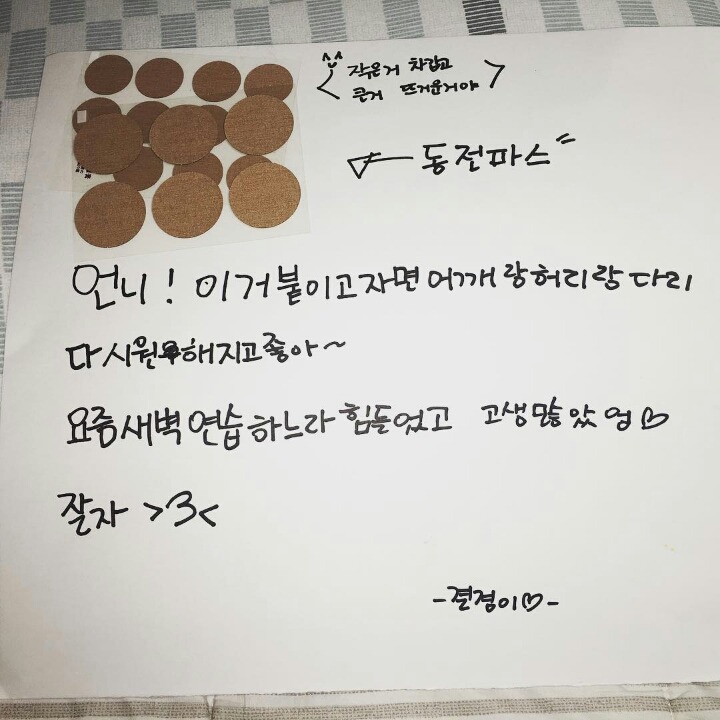 작은거 차갑고
큰거 뜨거운거야
동전파스
언니! 이거붙이고자면 어깨랑허리랑 다리
다 시원해지고좋아~
요즘새벽연습하느라 힘들었고 고생많았엉♡
잘자 >3<
-결경이♡-